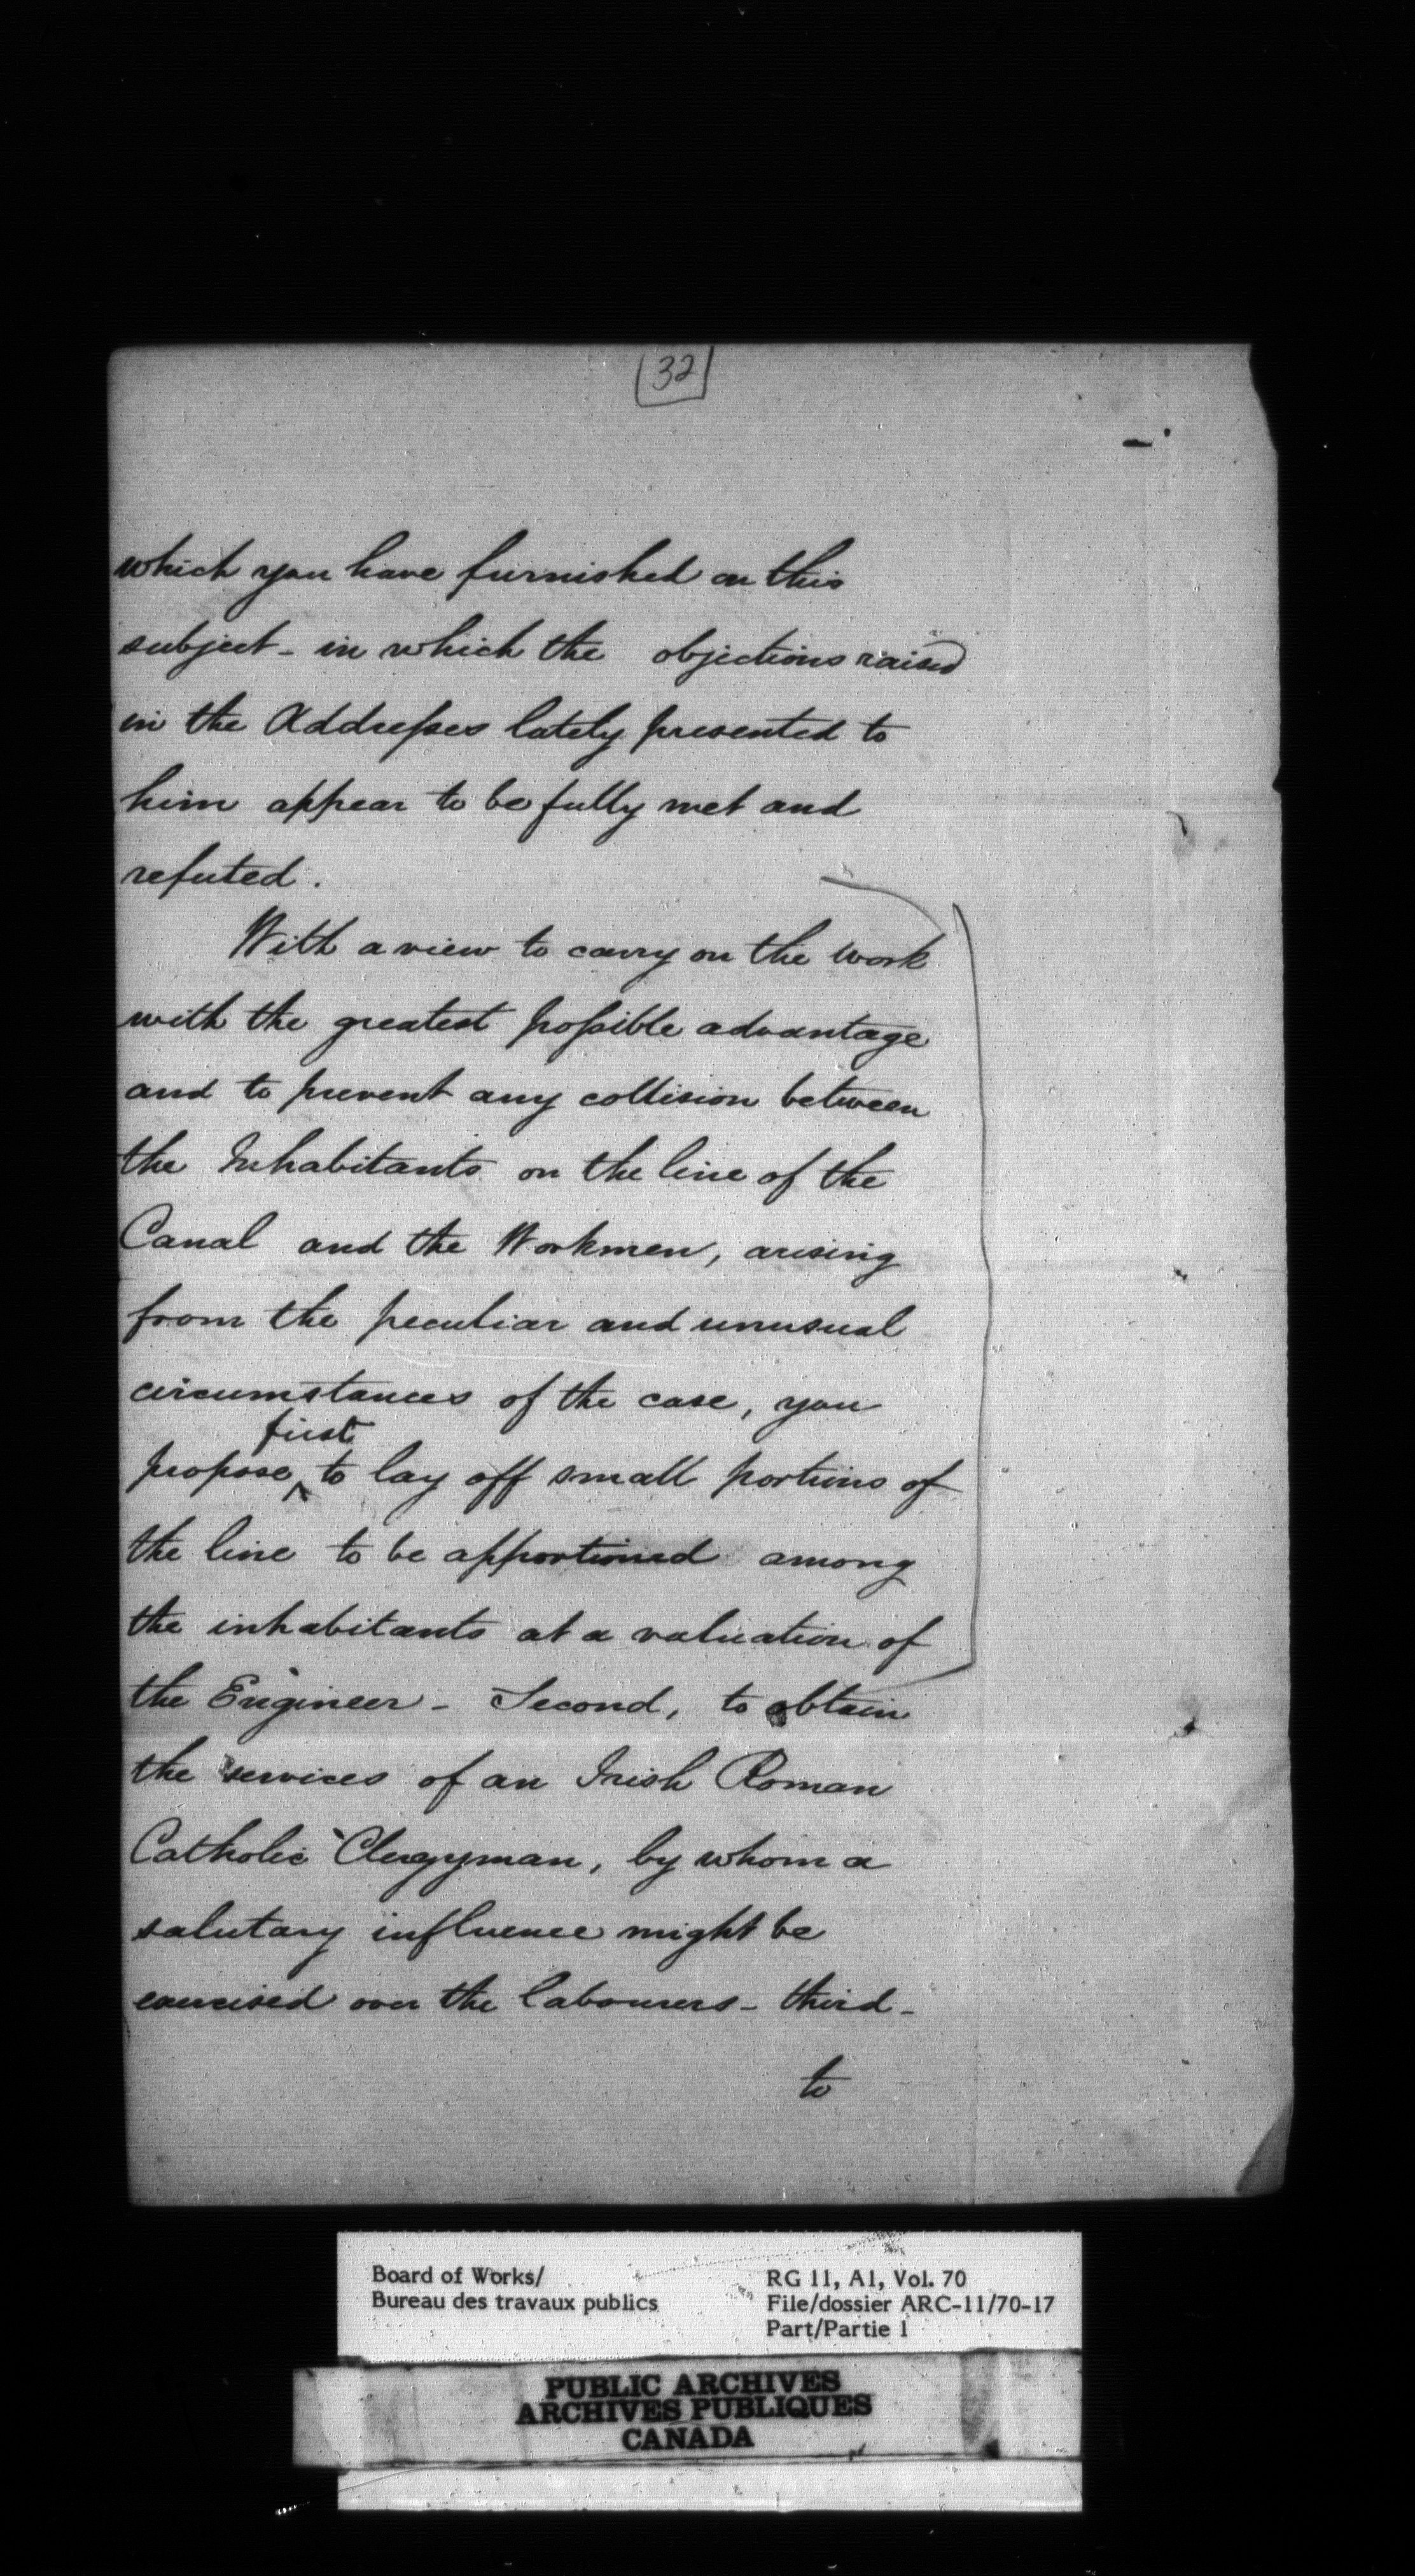 32
which you have furnished on this
subject - in which the objections raised
in the Addresses lately presented to
him appear to be fully met and
refuted.
With a view to carry on the work
with the greatest possible advantage
and to prevent any collision between
the Inhabitants on the line of the
Canal and the Workmen, arising
from the peculiar and unusual
circumstances of the case, you
first
propose to lay off small portions of
the line to be apportioned among
the inhabitants at a valuation of
the Engineer - Second, to obtain
the services of an Irish Roman
Catholic Clergyman, by whom a
salutary influence might be
exercised over the labourers - third -
to
Board of Works/
Bureau des travaux publics
RG 11, A1, Vol. 70
File/dossier ARC-11/70-17
Part/Partie 1
PUBLIC ARCHIVES
ARCHIVES PUBLIQUES
CANADA